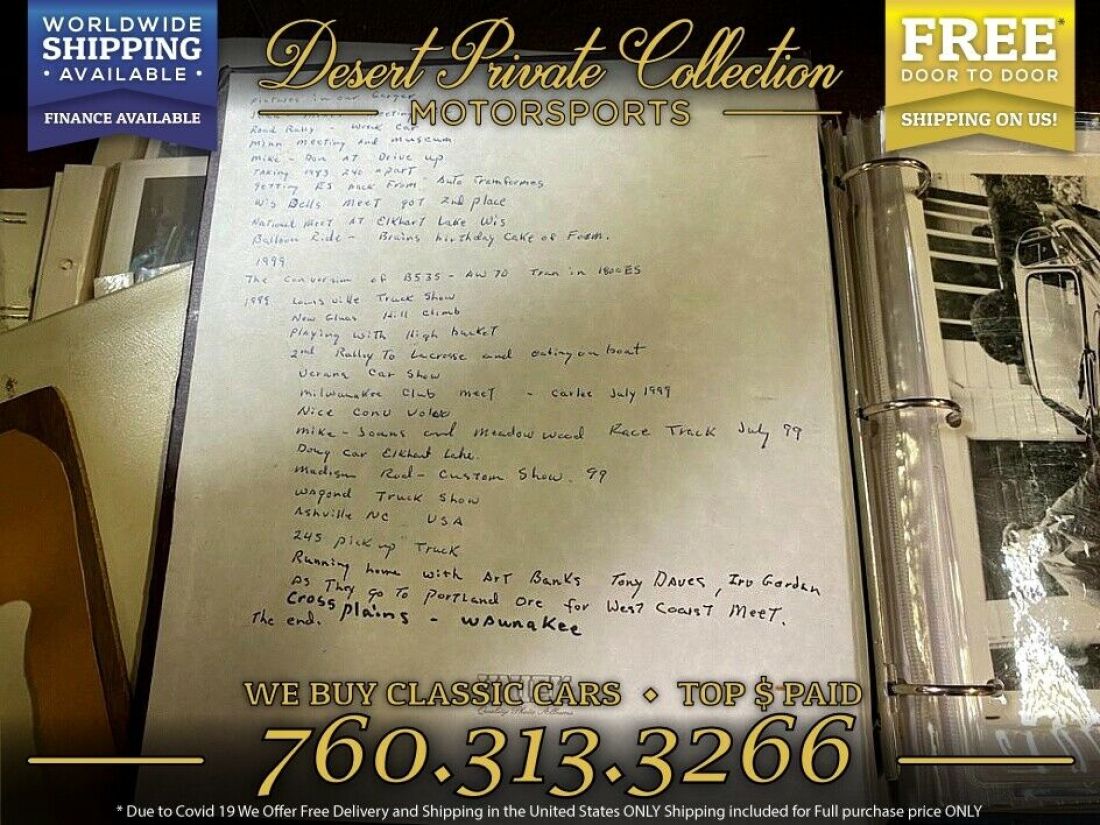 WORLDWIDE
SHIPPING
• AVAILABLE •
FINANCE AVAILABLE
Desert Private Collection
MOTORSPORTS
FREE*
DOOR TO DOOR
SHIPPING ON US!
Pictures in our
Road Rally - Work Car
Minn meeting And museum
mike - Don AT Drive up
Taking 1983 240 apart
getting ES back From Auto Transformes
Wis Bells meet got 2nd place
National Meet AT Elkhart Lake Wis
Balloon Ride - Brains birthday Cake of Foam.
1999
The Conversion of B535 - AW 70 Tran in 1800ES
1999 Louisville Truck Show
New Glaus Hill climb
Playing with High bucket
2nd Ralley To Lacrosse and eating on boat
Verana Car Show
milwaukee Club meet - Carlee July 1999
Nice Conv Volvo
mike - and Meadow wood Race Track July 99
Doug Car Elkhart Lake.
Madison Rod - Custom Show. 99
Wagond Truck Show
Ashville NC USA
245 pick up Truck
Running home with Art Banks Tony Daves, Irv Gordan
As They go To Portland Ore for West Coast Meet.
Cross plains - waunakee
The end.
WE BUY CLASSIC CARS ⬥ TOP $ PAID
760.313.3266
* Due to Covid 19 We Offer Free Delivery and Shipping in the United States ONLY Shipping included for Full purchase price ONLY